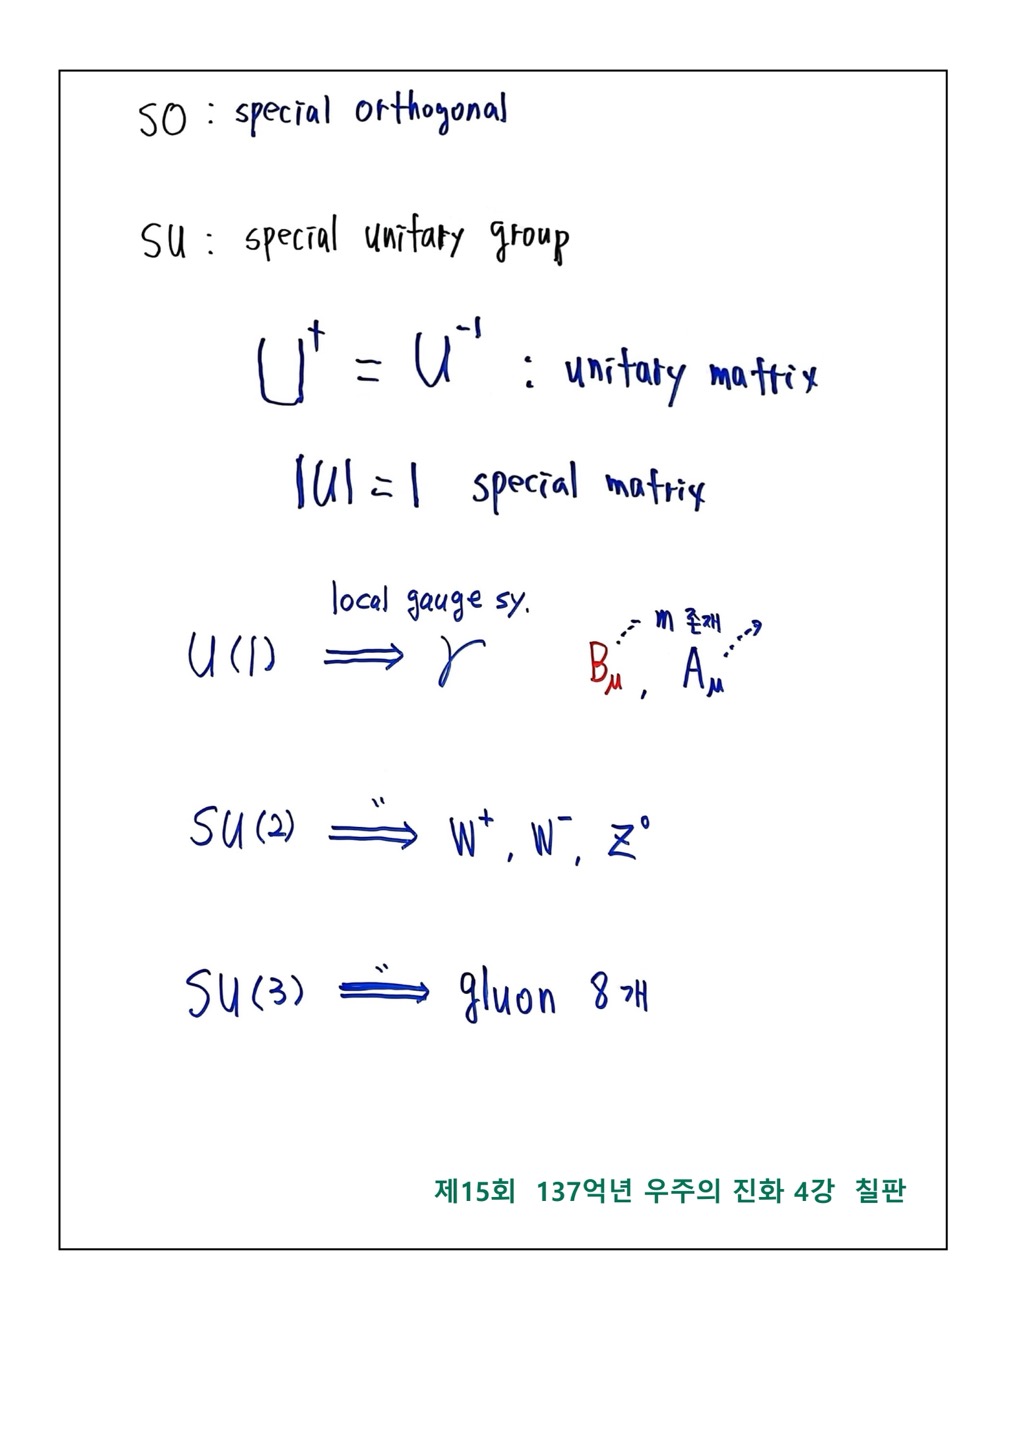 SO : special orthogonal
SU : special unitary group
U† = U⁻¹ : unitary matrix
|U| = 1 special matrix
local gauge sy.
U(1) ⟹ γ Bμ , Aμ
m 존재
SU(2) ⟹ W⁺, W⁻, Z⁰
SU(3) ⟹ gluon 8개
제15회 137억년 우주의 진화 4강 칠판